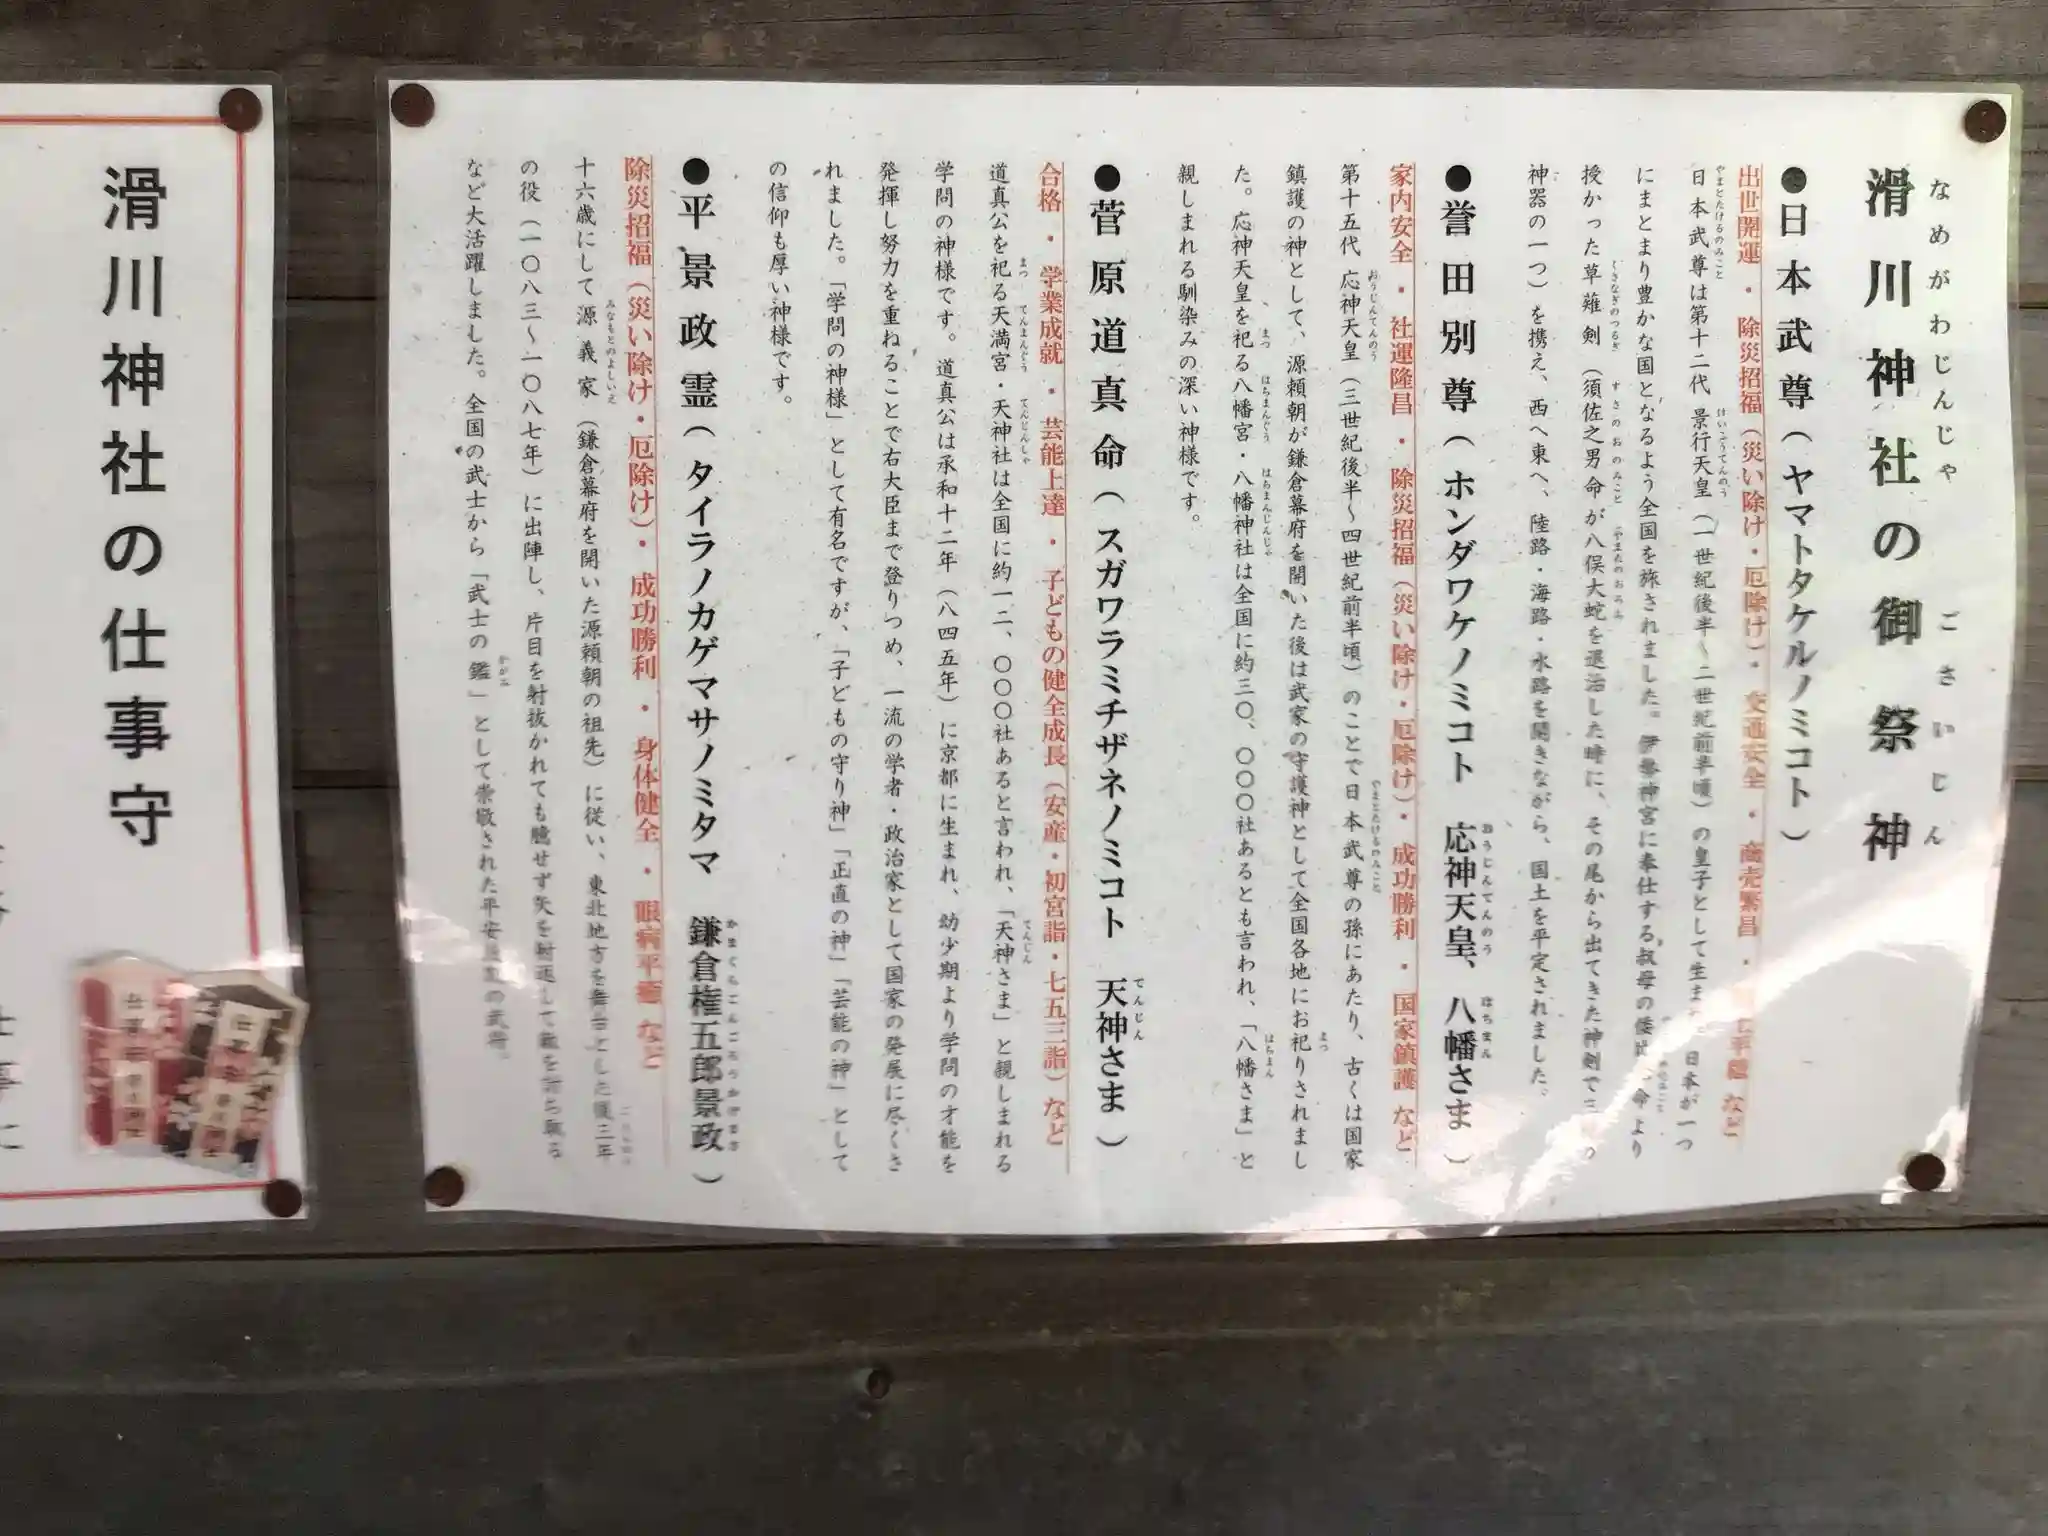 滑川神社の御祭神
なめがわじんじゃ ごさいじん
●日本武尊（ヤマトタケルノミコト）
出世開運・除災招福（災い除け・厄除け）・交通安全・商売繁昌・ など
日本武尊は第十二代 景行天皇（一世紀後半～二世紀前半頃）の皇子として生ま 日本が一つ
やまとたけるのみこと けいこうてんのう
にまとまり豊かな国となるよう全国を旅されました。伊勢神宮に奉仕する叔母の倭 命より
授かった草薙剣（須佐之男命が八俣大蛇を退治した時に、その尾から出てきた神剣で三 の
くさなぎのつるぎ すさのおのみこと やまたのおろち
神器の一つ）を携え、西へ東へ、陸路・海路・水路を開きながら、国土を平定されました。
●誉田別尊（ホンダワケノミコト 応神天皇、八幡さま）
おうじんてんのう はちまん
家内安全・社運隆昌・除災招福（災い除け・厄除け）・成功勝利・国家鎮護 など
第十五代 応神天皇（三世紀後半～四世紀前半頃）のことで日本武尊の孫にあたり、古くは国家
おうじんてんのう やまとたけるのみこと
鎮護の神として、源頼朝が鎌倉幕府を開いた後は武家の守護神として全国各地にお祀りされまし
まつ
た。応神天皇を祀る八幡宮・八幡神社は全国に約三〇、〇〇〇社あるとも言われ、「八幡さま」と
まつ はちまんぐう はちまんじんじゃ はちまん
親しまれる馴染みの深い神様です。
●菅原道真命（スガワラミチザネノミコト 天神さま）
てんじん
合格・学業成就・芸能上達・子どもの健全成長（安産・初宮詣・七五三詣）など
道真公を祀る天満宮・天神社は全国に約一二、〇〇〇社あると言われ、「天神さま」と親しまれる
まつ てんまんぐう てんじんしゃ てんじん
学問の神様です。道真公は承和十二年（八四五年）に京都に生まれ、幼少期より学問の才能を
発揮し努力を重ねることで右大臣まで登りつめ、一流の学者・政治家として国家の発展に尽くさ
れました。「学問の神様」として有名ですが、「子どもの守り神」「正直の神」「芸能の神」として
の信仰も厚い神様です。
●平景政霊（タイラノカゲマサノミタマ 鎌倉権五郎景政）
かまくらごんごろうかげまさ
除災招福（災い除け・厄除け）・成功勝利・身体健全・眼病平癒 など
十六歳にして源義家（鎌倉幕府を開いた源頼朝の祖先）に従い、東北地方を舞台とした後三年
みなもとのよしいえ
の役（一〇八三～一〇八七年）に出陣し、片目を射抜かれても臆せず矢を射返して敵を討ち取る
など大活躍しました。全国の武士から「武士の鑑」として崇敬された平安 の武将。
かがみ
滑川神社の仕事守